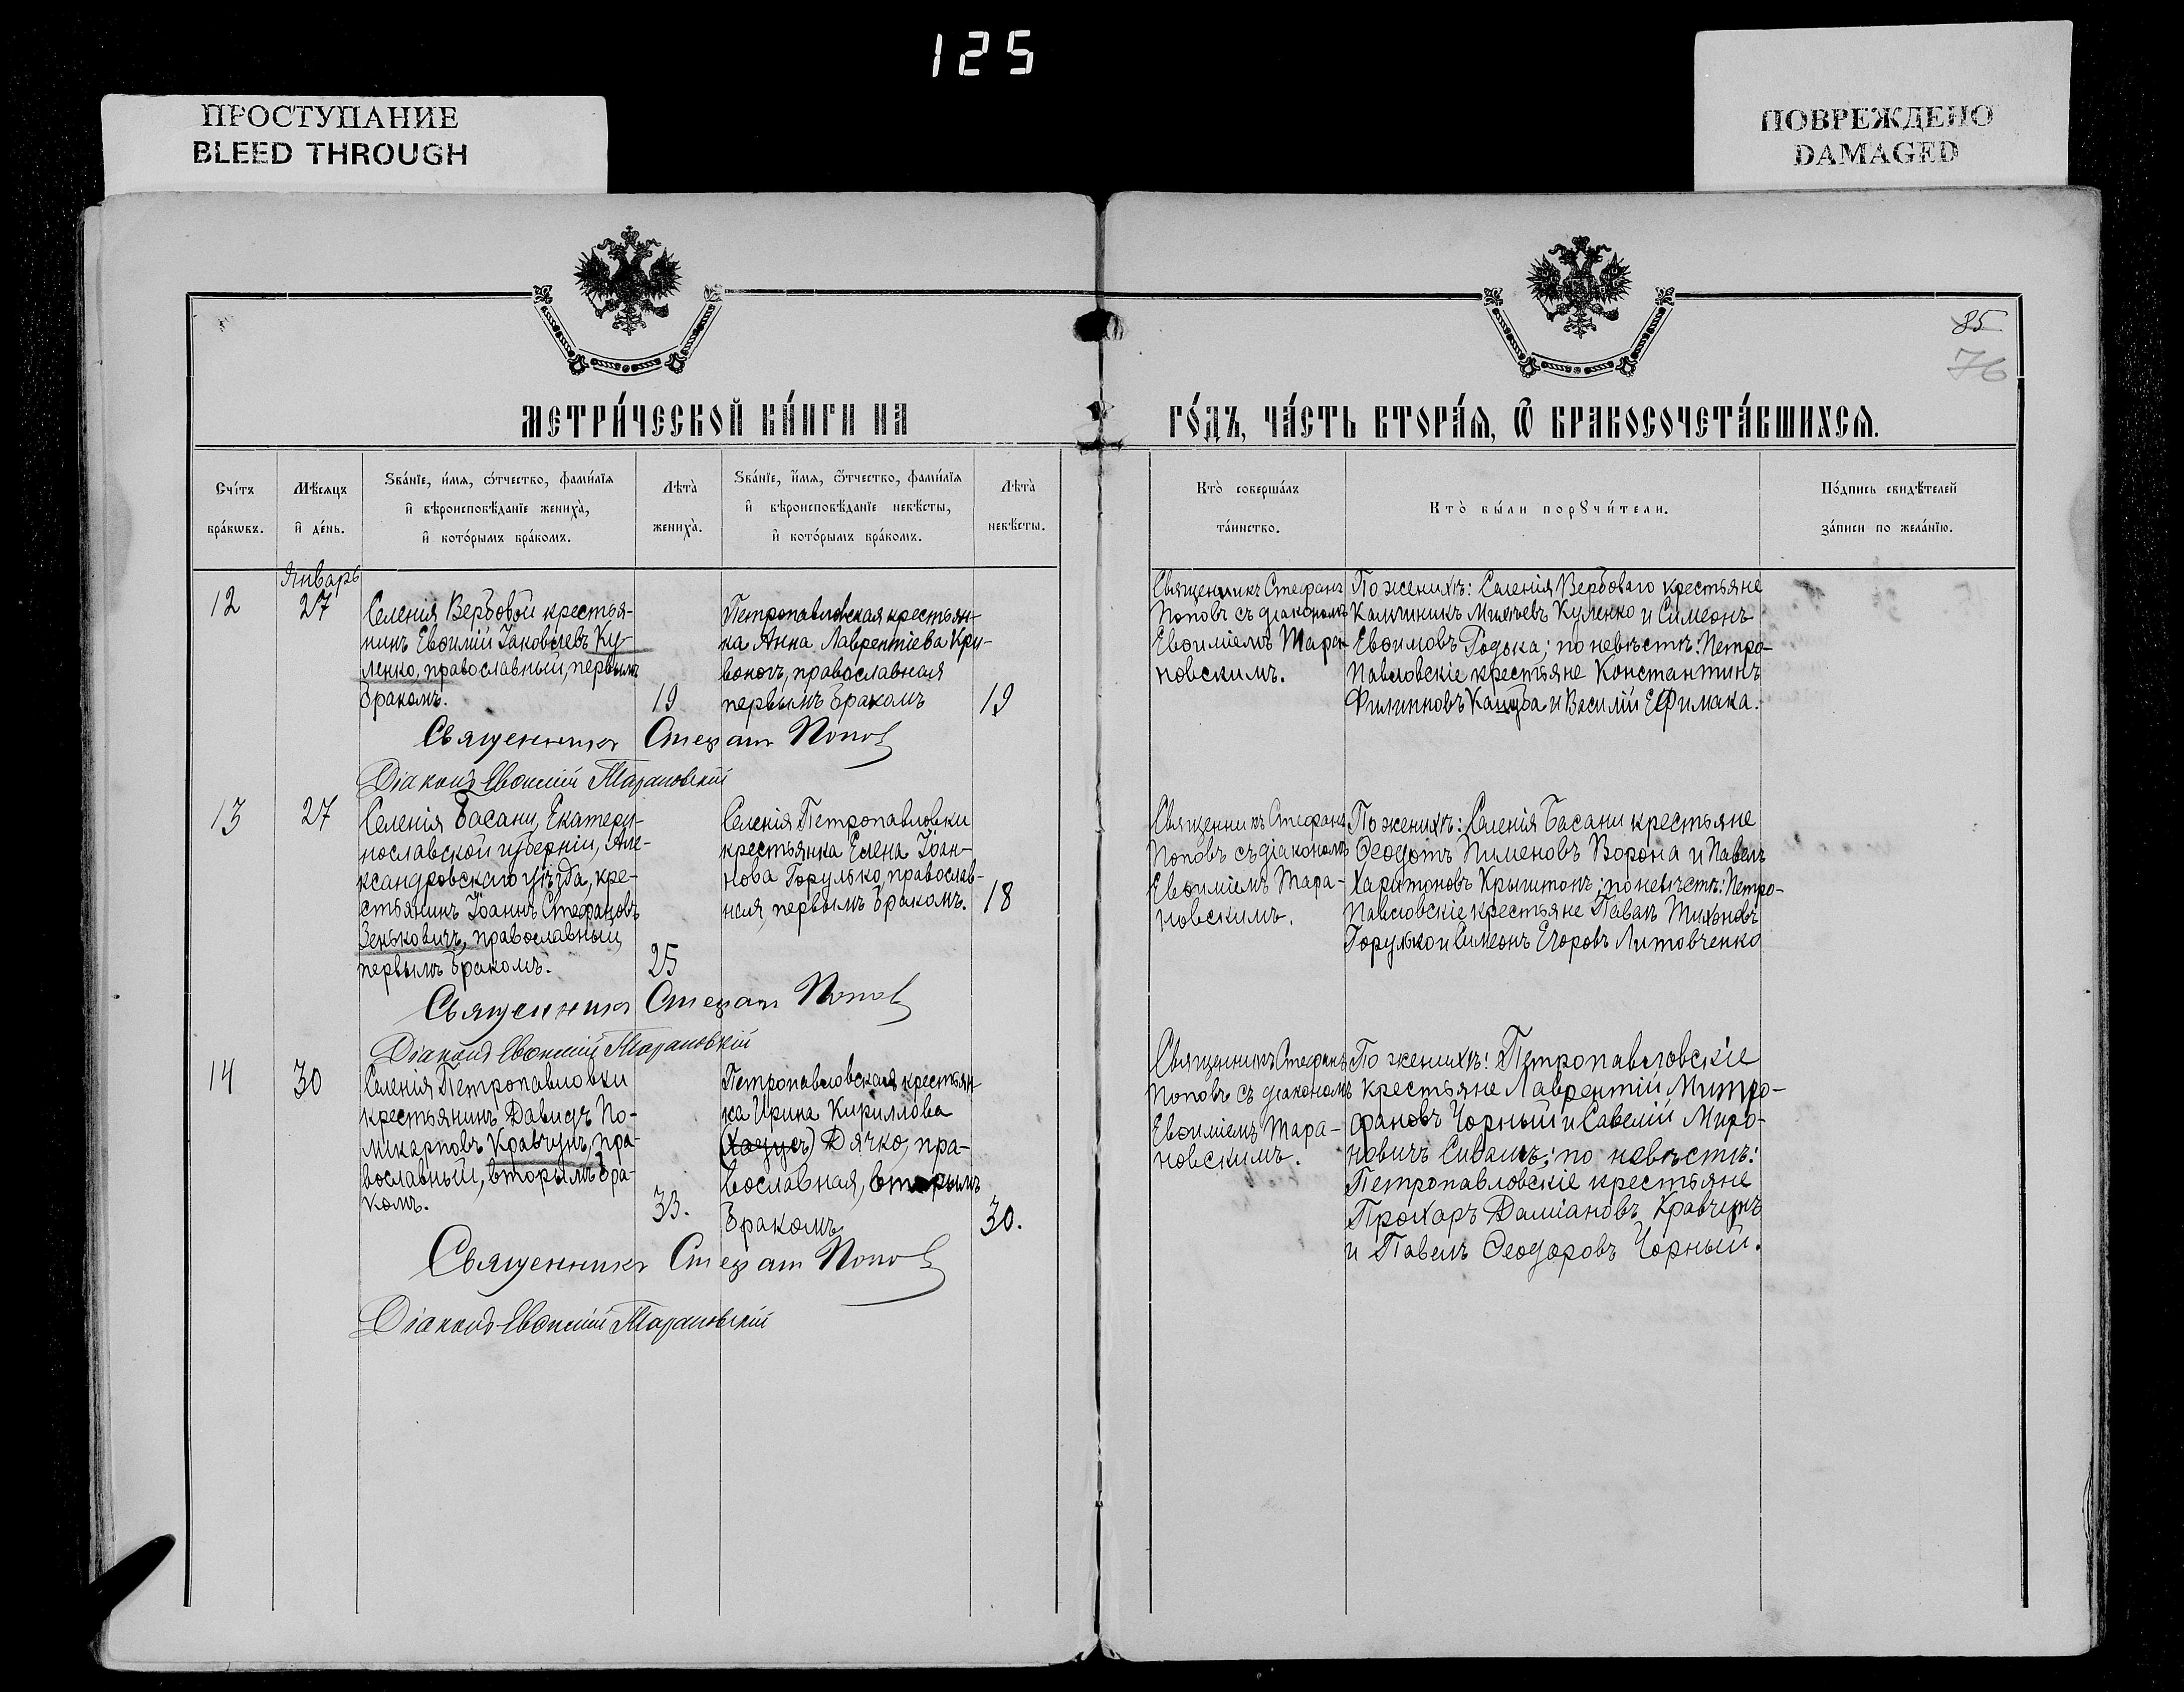 125
ПРОСТУПАНИЕ
BLEED THROUGH
ПОВРЕЖДЕНО
DAMAGED
85
76
МЕТРИ́ЧЕСКОЙ КНИ́ГИ НА
ГО́ДЪ, ЧА́СТЬ ВТОРА́Ѧ, Ѡ҆ БРАКОСОЧЕТА́ВШИХСѦ.
Сче́тъ
бра́кѡвъ.
Мѣ́сѧцъ
и҆ де́нь.
Ѕва́нїе, и҆́мѧ, ѻ҆́тчество, фами́лїѧ
и҆ вѣроисповѣ́данїе жениха̀,
и҆ кото́рымъ бра́комъ.
Лѣ́та
жениха̀.
Ѕва́нїе, и҆́мѧ, ѻ҆́тчество, фами́лїѧ
и҆ вѣроисповѣ́данїе невѣ́сты,
и҆ кото́рымъ бра́комъ.
Лѣ́та
невѣ́сты.
Кто̀ соверша́лъ
та́инство.
Кто̀ бы́ли порꙋчи́тели.
По́дпись свидѣ́телей
за́писи по жела́нїю.
Январь
12
27
Селенія Вербовой крестья-
нинъ Евѳимій Іаковлевъ Ку-
ленко, православный, первымъ
бракомъ.
19
Петропавловская крестьян-
ка Анна Лаврентіева Кри-
воногъ, православная
первымъ бракомъ
19
Священникъ Стефанъ
Поповъ съ діакономъ
Евѳиміемъ Тара-
новскимъ.
По женихѣ: Селенія Вербоваго крестьяне
Куленко и Симеонъ
Евѳимовъ Годька; по невѣстѣ: Петро-
Павловскіе крестьяне Константинъ
Филипповъ и Василій Ефимака.
Священникъ Стефанъ Попов
Діаконъ Евѳимій Тарановскій
13
27
Селенія Басани, Екатери-
нославской губерніи, Але-
ксандровскаго уѣзда, кре-
стьянинъ Іоаннъ Стефановъ
Зеньковичъ, православный,
первымъ бракомъ.
25
Селенія Петропавловки
крестьянка Елена Іоан-
нова Горулько, православ-
ная, первымъ бракомъ.
18
Священникъ Стефанъ
Поповъ съ діакономъ
Евѳиміемъ Тара-
новскимъ.
По женихѣ: Селенія Басани крестьяне
Ѳеодотъ Пименовъ Ворона и Павелъ
Харитоновъ Крыштопъ; по невѣстѣ: Петро-
Павловскіе крестьяне Павелъ Тихоновъ
Горулько и Симеонъ Егоровъ Литовченко
Священникъ Стефанъ Попов
Діаконъ Евѳимій Тарановскій
14
30
Селенія Петропавловки
крестьянинъ Давидъ По-
ликарповъ Кравчунъ, пра-
вославный, вторымъ бра-
комъ.
33.
Петропавловская крестьян-
ка Ирина Кириллова
Дячко, пра-
вославная, вторымъ
бракомъ
30.
Священникъ Стефанъ
Поповъ съ діакономъ
Евѳиміемъ Тара-
новскимъ.
По женихѣ: Петропавловскіе
крестьяне Лаврентій Митро-
фановъ Чорный и Савелій Миро-
новичъ Сивашъ; по невѣстѣ:
Петропавловскіе крестьяне
Прохаръ Даміановъ Кравчунъ
и Павелъ Ѳеодоровъ Чорный.
Священникъ Стефанъ Попов
Діаконъ Евѳимій Тарановскій